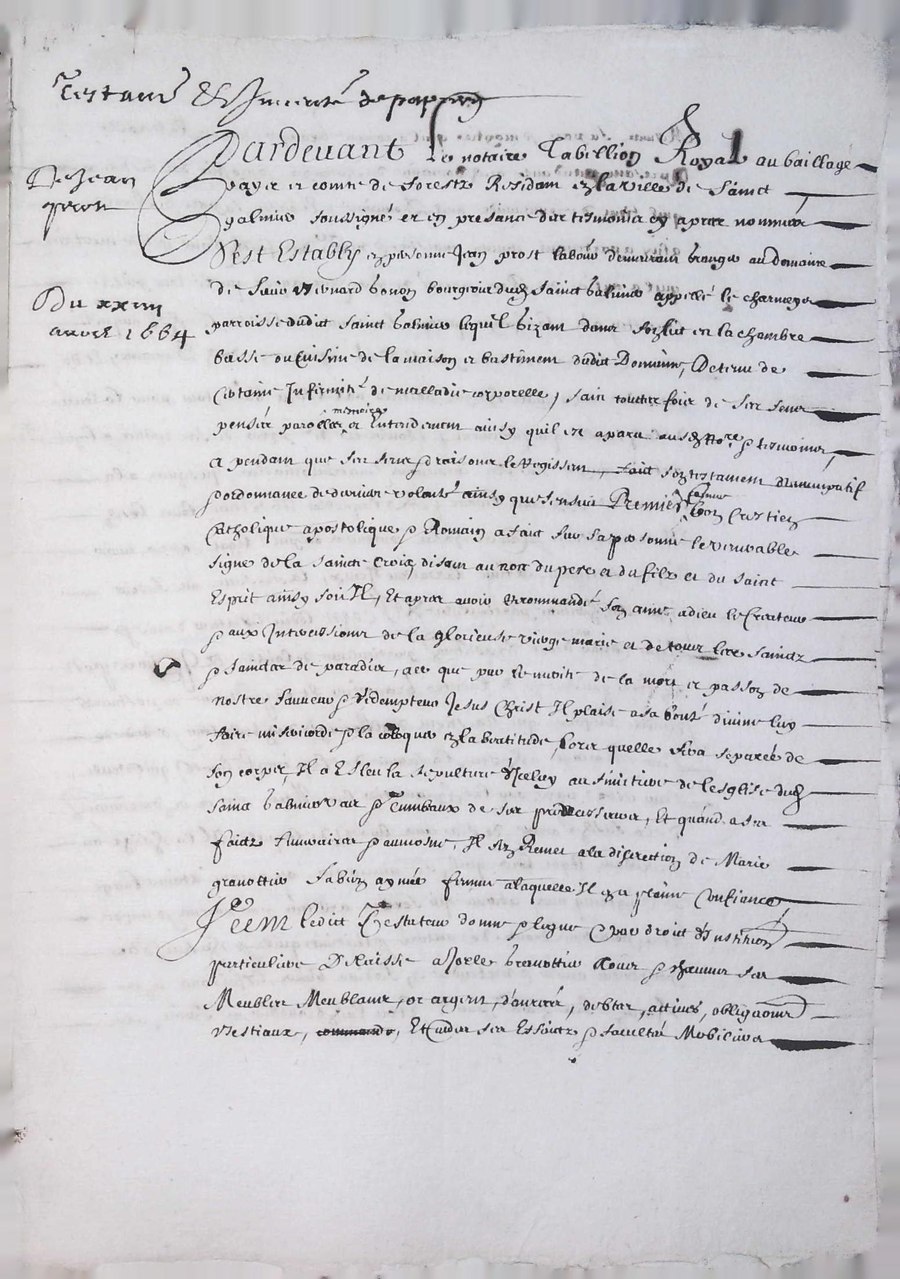 Testamt
De Jean
prost
Du xxiiii
avril 1664
Pardevant le notaire Tabellion Royal au bailliage
pays et comte de forestz Residant en la ville de Sainct
galmier soussigné et en presance des tesmoins cy apres nommes
S'est Estably en personne Jean prost labour demeurant au domaine
de Sieur bourgeois dud Sainct galmier appellé le
parroisse dudict Sainct galmier lequel gizant dans son lict en la chambre
basse ou cuisine de la maison et bastiment dudict Domaine, Detenu de
Certaine Infirmité de malladie corporelle, sain touttes fois de ses sens
pensée parolles memoire et Entendement ainsy quil est aparu ausd no.re & tesmoins,
& pendant que ses sens & raison le Regissent, faict son testament nuncupatif
& ordonnance de derniere volonté ainsy que sensuit Premier comme bon Crestien
Catholique apostolique & Romain a faict sur sa personne le venerable
signe de la saincte Croix disant au nom du pere et du filz et du saint
Esprit ainsy soit Il, Et apres avoir recommandé son ame a dieu le Createur
& aux Intercessions de la glorieuse vierge marie et de tous les saincts
& sainctes de paradis, a ce que par le merite de la mort et passion de
nostre sauveur & redempteur Jesus Christ Il plaise a sa bonté divine luy
faire misericorde & la colloquer en la beatitude, lors quelle sera separée de
son corps, Il a Esleu la sepulture d'Iceluy au simetiere de lesglise dud
sainct galmier & tumbeaux de ses predecesseurs, Et quand a ses
faictz funeraires & aumosne, Il sen Remet a la discretion de Marie
sa bien aymée femme a laquelle Il en a plaine confiance
Item ledict Testateur donne & legue & par droit d'Institution
particuliere Delaisse a tous & chacuns ses
Meubles Meublants, or argent, danrées, debtes, actives, obligaons
Bestiaux, Et autres ses Effectz & facultés Mobiliaires